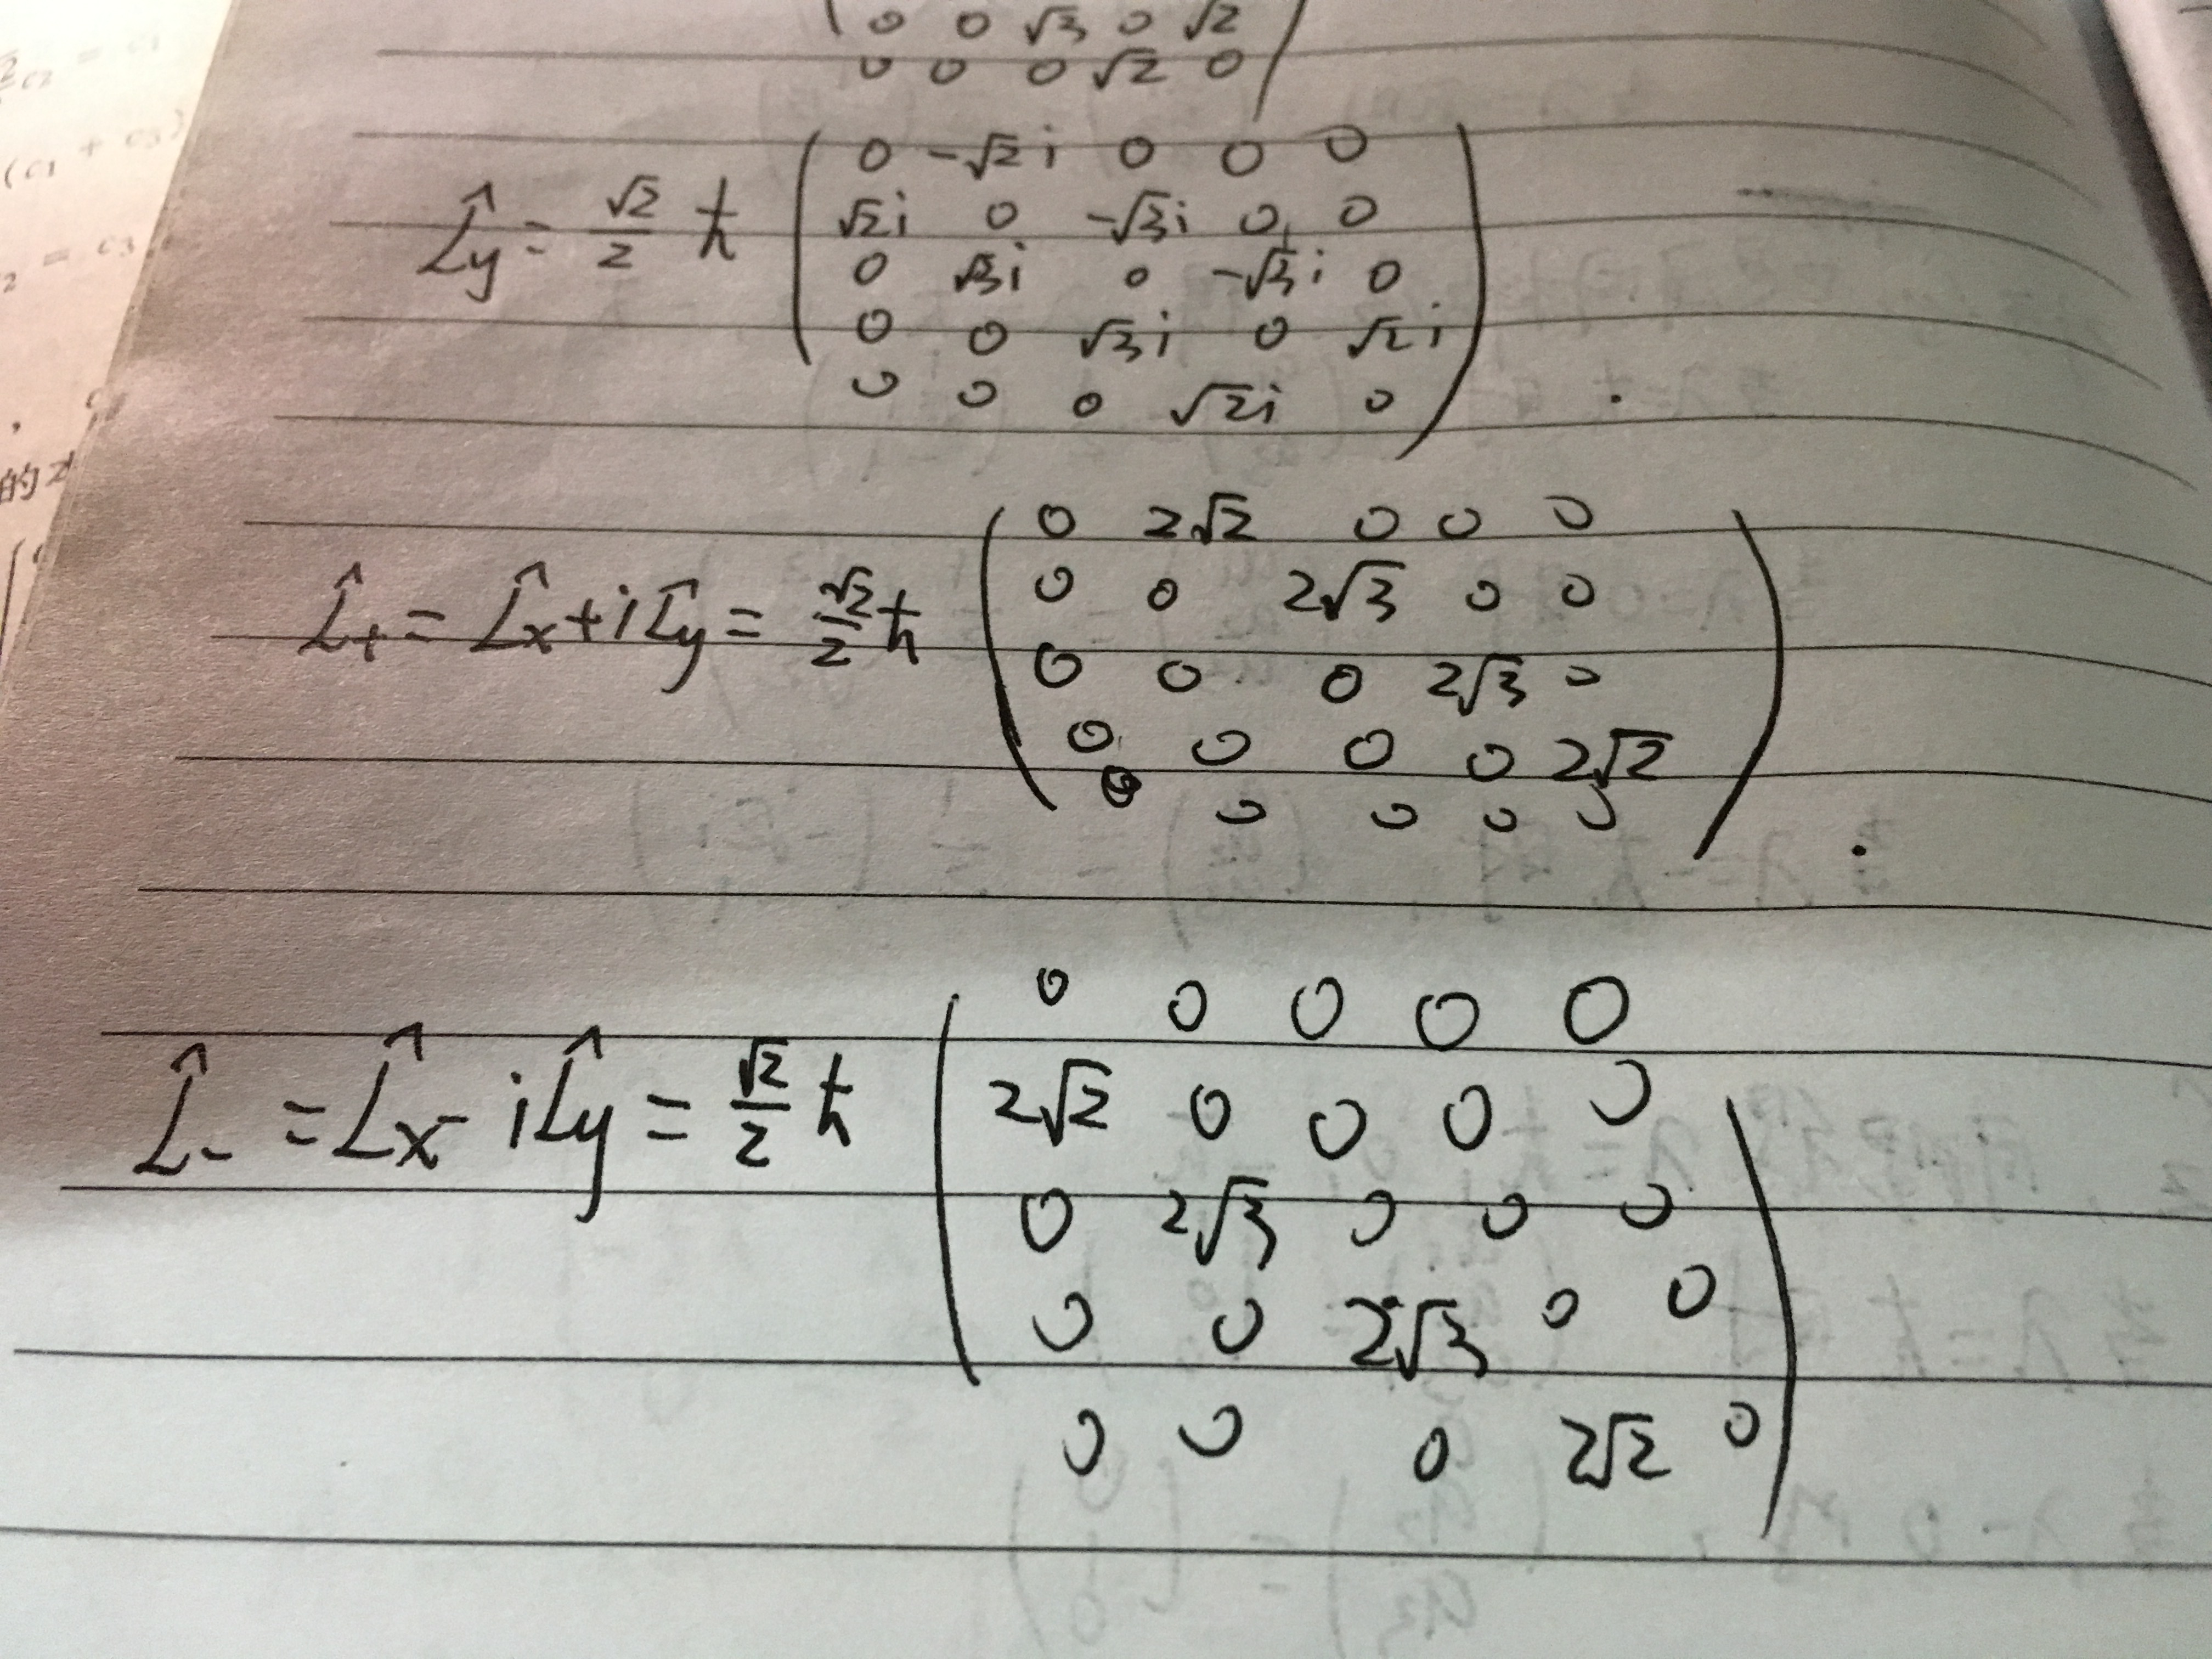 0 0 √3 0 √2
0 0 0 √2 0
L̂y = √2/2 ħ ( 0 -√2i 0 0 0
√2i 0 -√3i 0 0
0 √3i 0 -√3i 0
0 0 √3i 0 √2i
0 0 0 √2i 0 ) .
L̂+ = L̂x + iL̂y = √2/2 ħ ( 0 2√2 0 0 0
0 0 2√3 0 0
0 0 0 2√3 0
0 0 0 0 2√2
0 0 0 0 0 ) .
L̂- = L̂x - iL̂y = √2/2 ħ ( 0 0 0 0 0
2√2 0 0 0 0
0 2√3 0 0 0
0 0 2√3 0 0
0 0 0 2√2 0 )